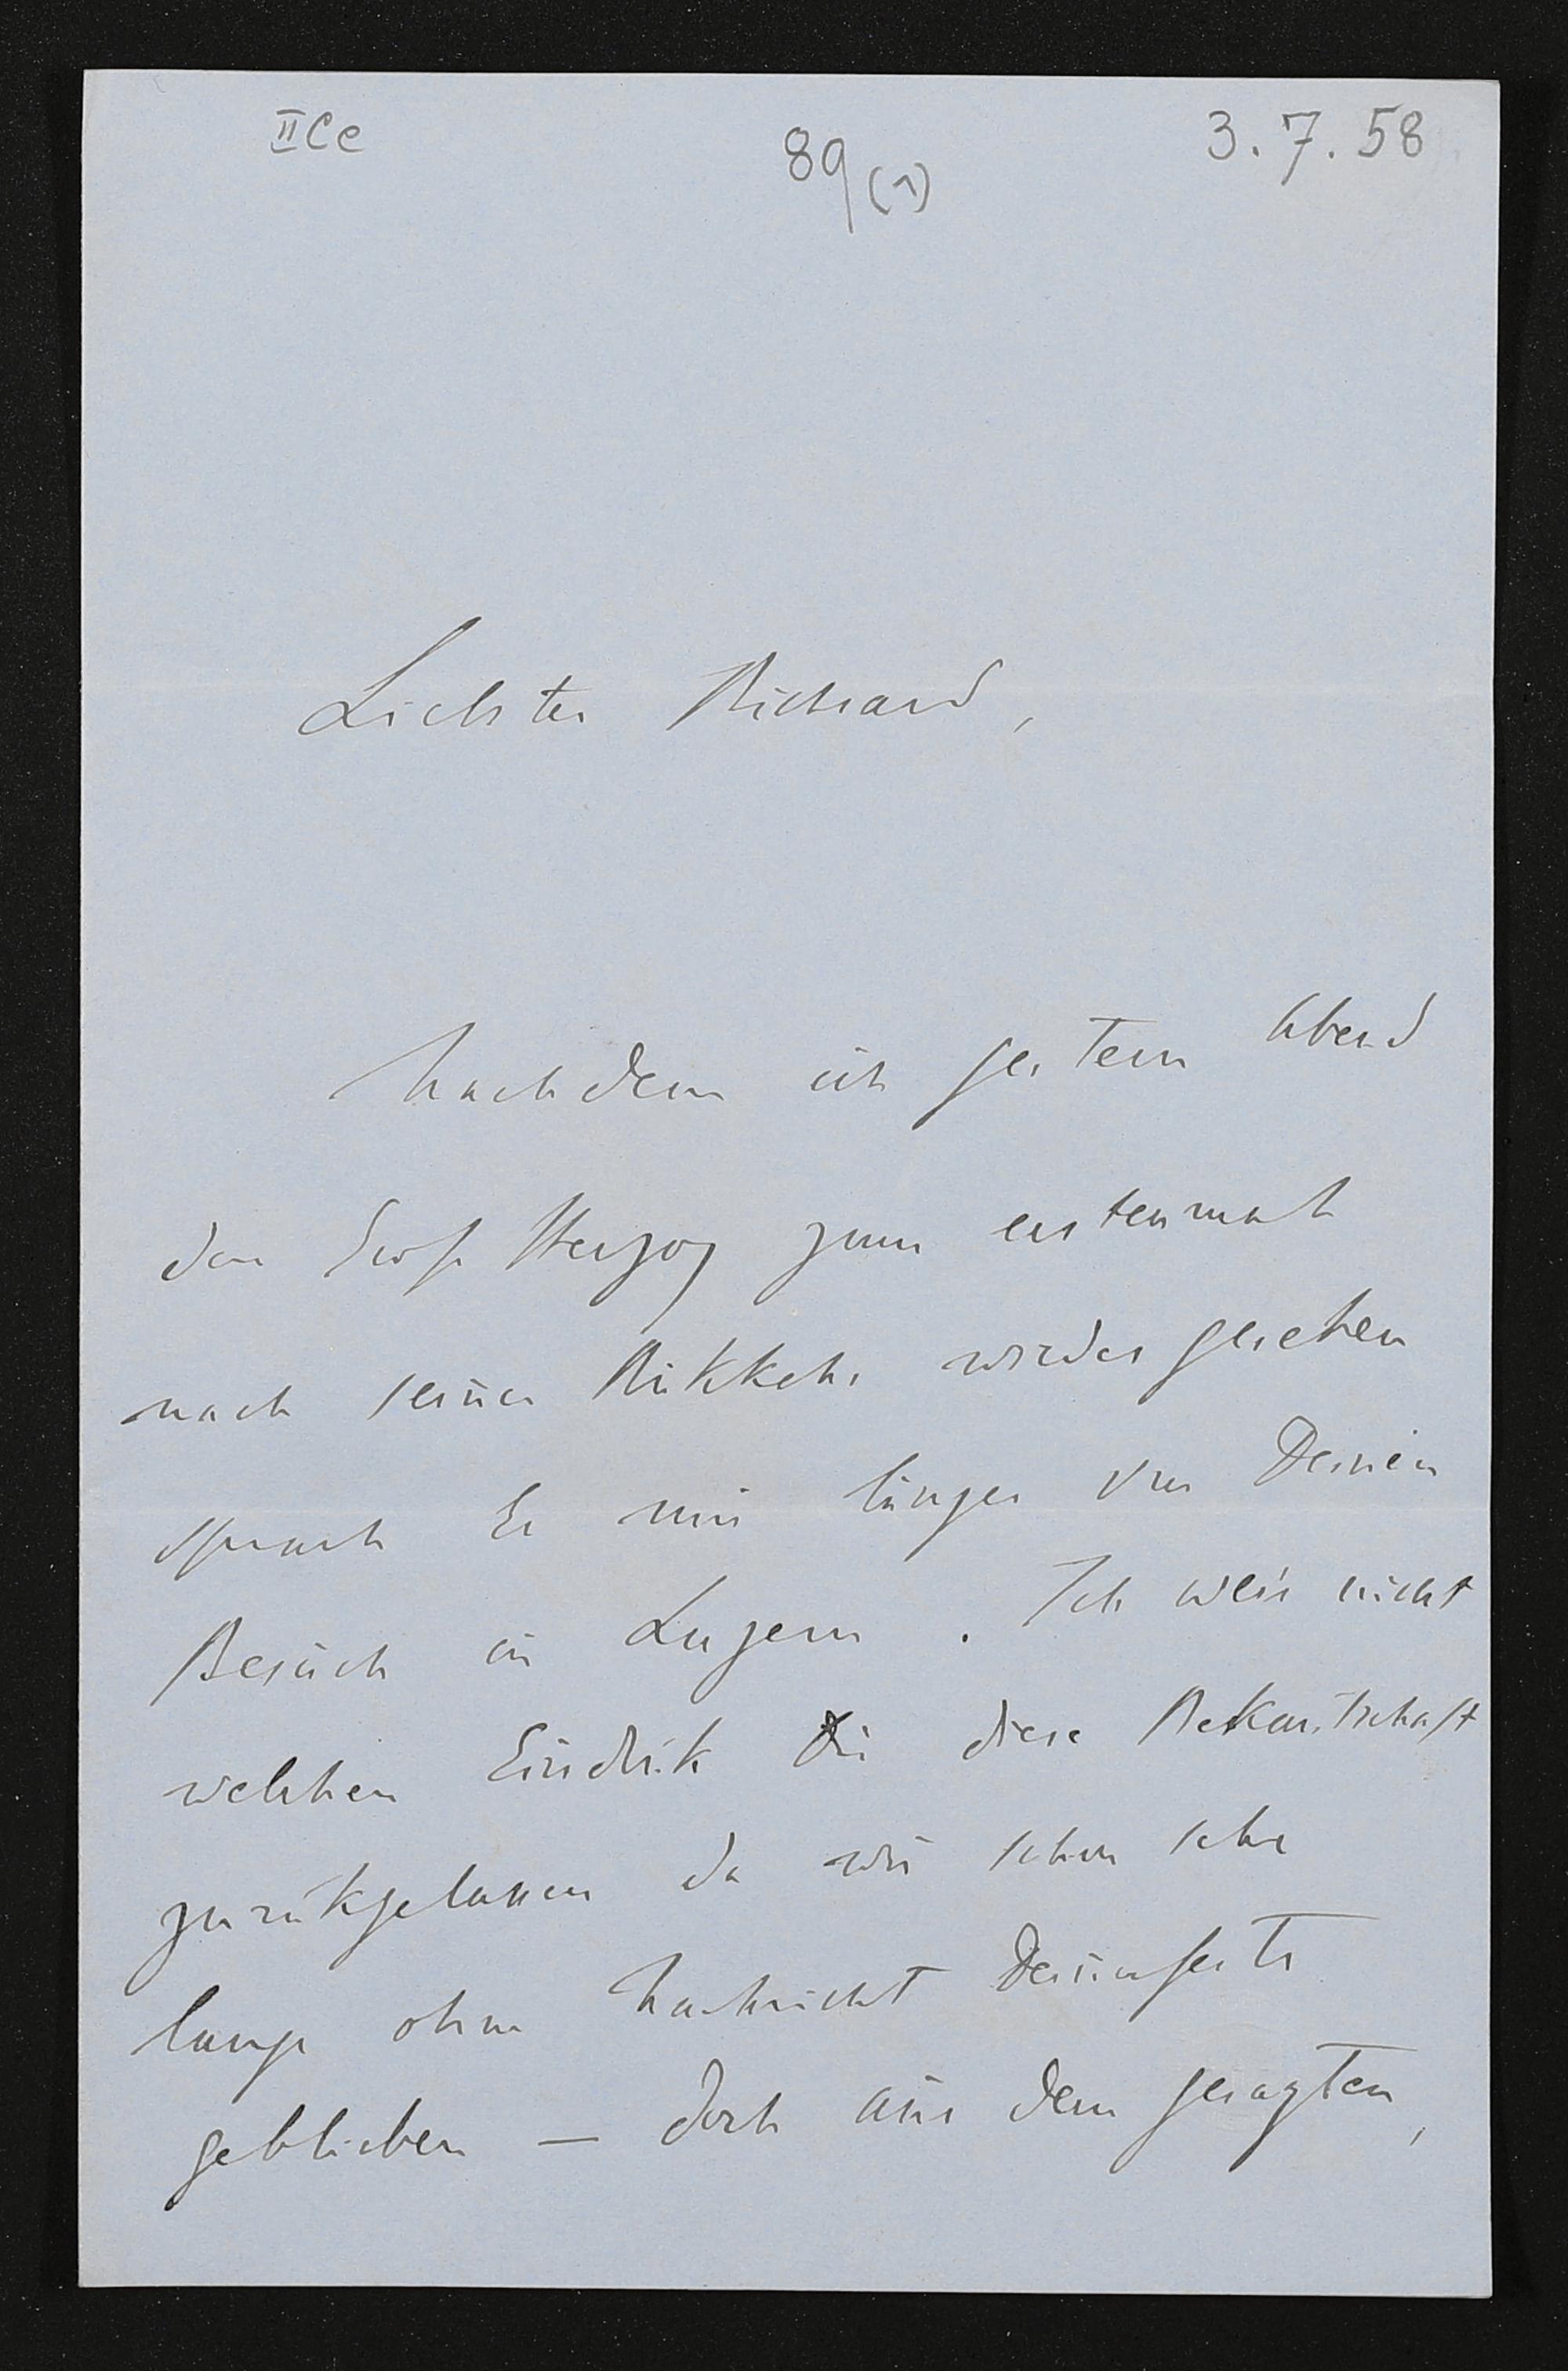 IICe
89 (1)
3.7.58
Liebster Richard,
Nachdem ich gestern Abend
den Groß Herzog zum erstenmal
nach seiner Rükkehr wieder gesehen
sprach Er mir länger von Deinem
Besuch in Luzern. Ich weis nicht
welchen Eindruk Dir diese Bekantschaft
zurükgelassen da wir schon sehr
lange ohne Nachricht Deinerseits
geblieben — doch aus dem gesagten,